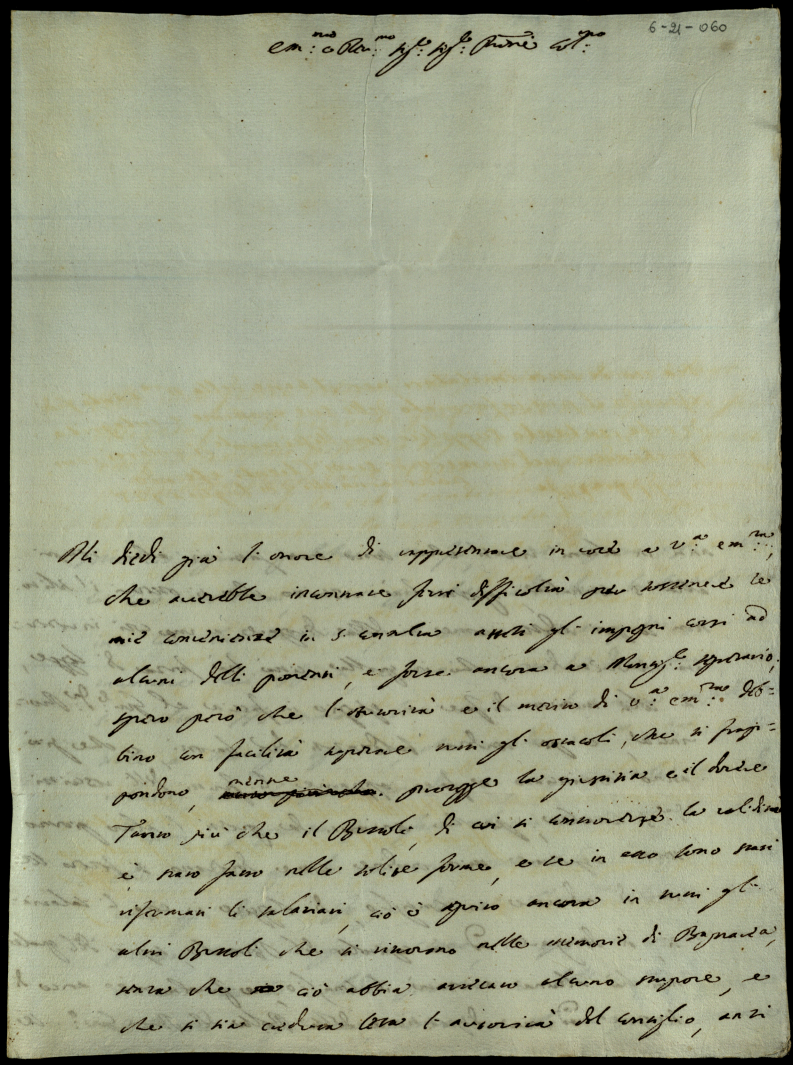 6-21-060
Em:mo e Rev:mo Sig:e Sig:e Prone Col:mo
Mi diedi già l'onore di rappresentare in voce a V:a Em:za,
che avrebbe incontrate forsi difficoltà per sostenere le
mie convenienze in S. Consulta attesi gli impegni corsi ad
alcuni delli ponenti, e forse ancora a Monsig:e Segretario;
spero però che l'autorità e il merito di V:a Em:za deb=
bino con facilità superare tutti gli ostacoli, che si frap=
pondono, mentre protegge la giustizia e il dovere
Tanto più che il Bussoli, di cui si controverte la validità
è stato fatto nelle solite forme, e se in esso sono stati
riformati li salariati, ciò è seguito ancora in tutti gli
altri Bussoli che si trovano nelle memorie di Bagnaia,
senza che ciò abbia arrecato alcuno stupore, e
che si sia creduta lesa l'autorità del consiglio, anzi